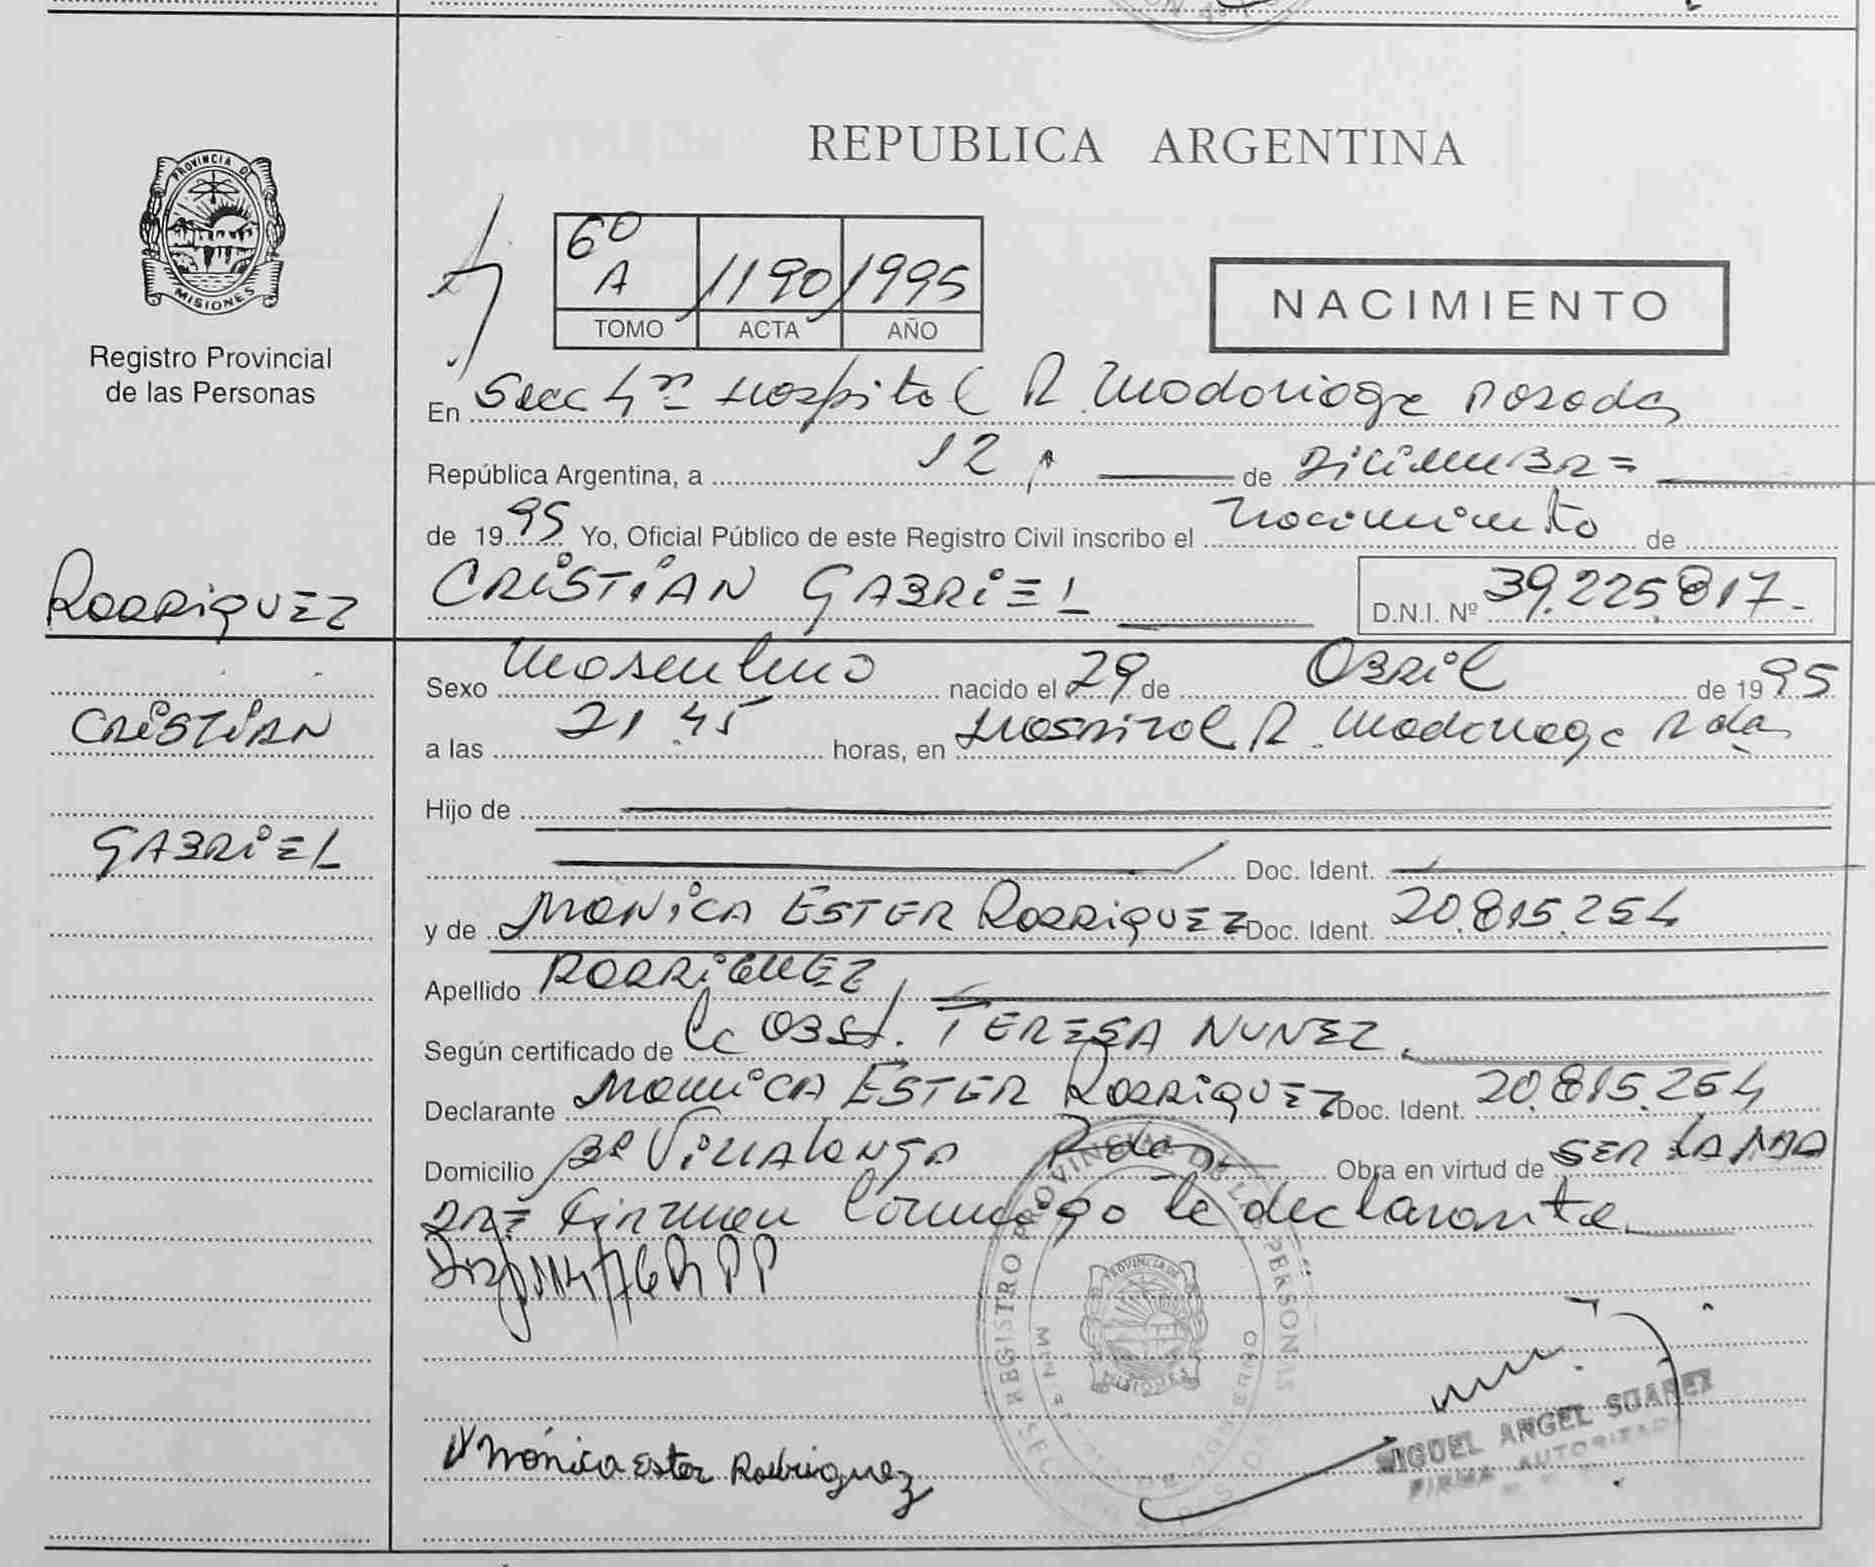 REPUBLICA ARGENTINA
PROVINCIA DE
MISIONES
Registro Provincial
de las Personas
6º A 1190 1995
TOMO ACTA AÑO
NACIMIENTO
En Secc 4ª Hospital R. Madariaga Posadas
República Argentina, a 12 de Diciembre
de 1995 Yo, Oficial Público de este Registro Civil inscribo el nacimiento de
RODRIGUEZ
CRISTIAN GABRIEL D.N.I. Nº 39.225.817.-
Sexo Masculino nacido el 29 de Abril de 1995
CRISTIAN
a las 21.45 horas, en Hospital R. Madariaga Pdas
Hijo de
GABRIEL
Doc. Ident.
y de MONICA ESTER RODRIGUEZ Doc. Ident. 20.815.254
Apellido RODRIGUEZ
Según certificado de la Obst. TERESA NUNEZ.
Declarante MONICA ESTER RODRIGUEZ Doc. Ident. 20.815.254
Domicilio Bº Villalonga Pdas Obra en virtud de SER LA MA
DRE Firman conmigo la declarante.
REGISTRO PROVINCIAL DE LAS PERSONAS
PROVINCIA DE
MISIONES
Mónica Ester Rodriguez
MIGUEL ANGEL SUAREZ
FIRMA AUTORIZADA